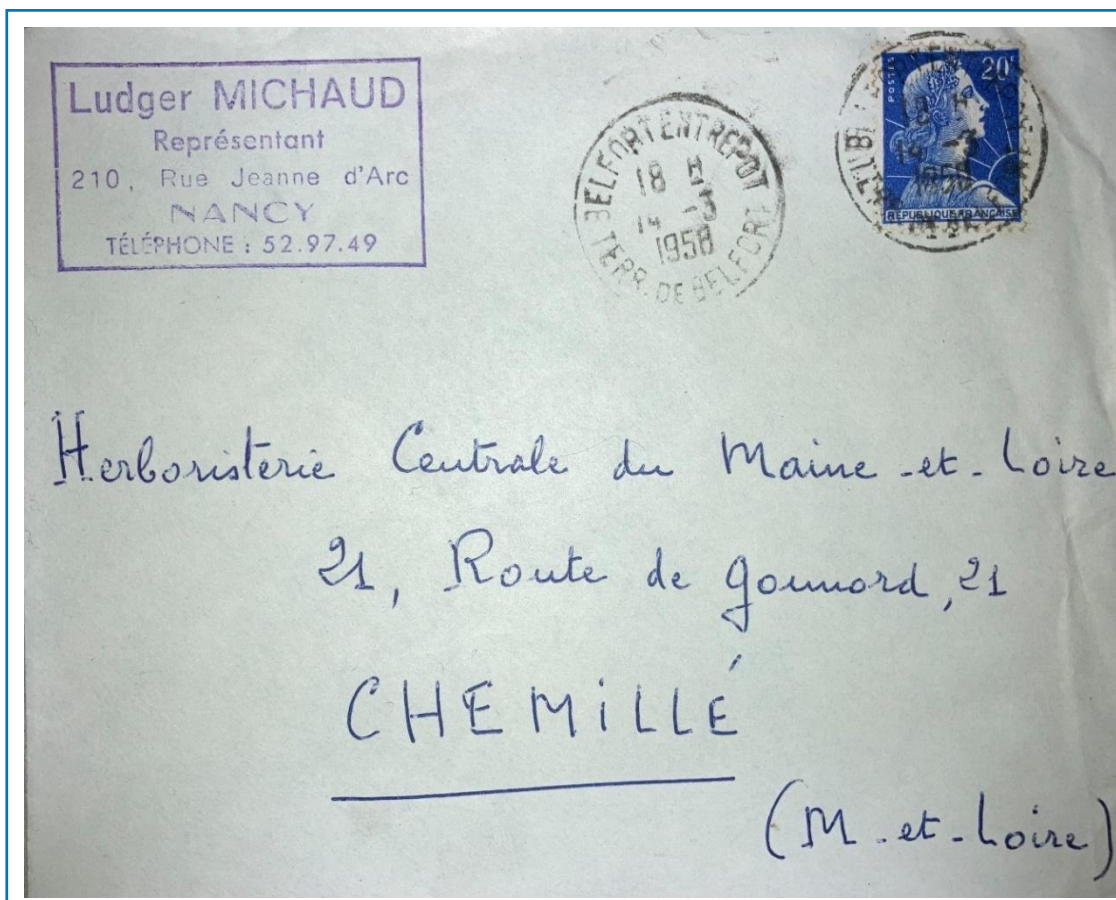 Ludger MICHAUD
Représentant
210, Rue Jeanne d'Arc
NANCY
TÉLÉPHONE : 52.97.49
BELFORT ENTREPOT
18 H
14 -3
1958
TERR. DE BELFORT
POSTES
20F
REPUBLIQUE FRANÇAISE
Herboristerie Centrale du Maine-et-Loire
21, Route de Gounord, 21
CHEMiLLÉ
(M-et-Loire)